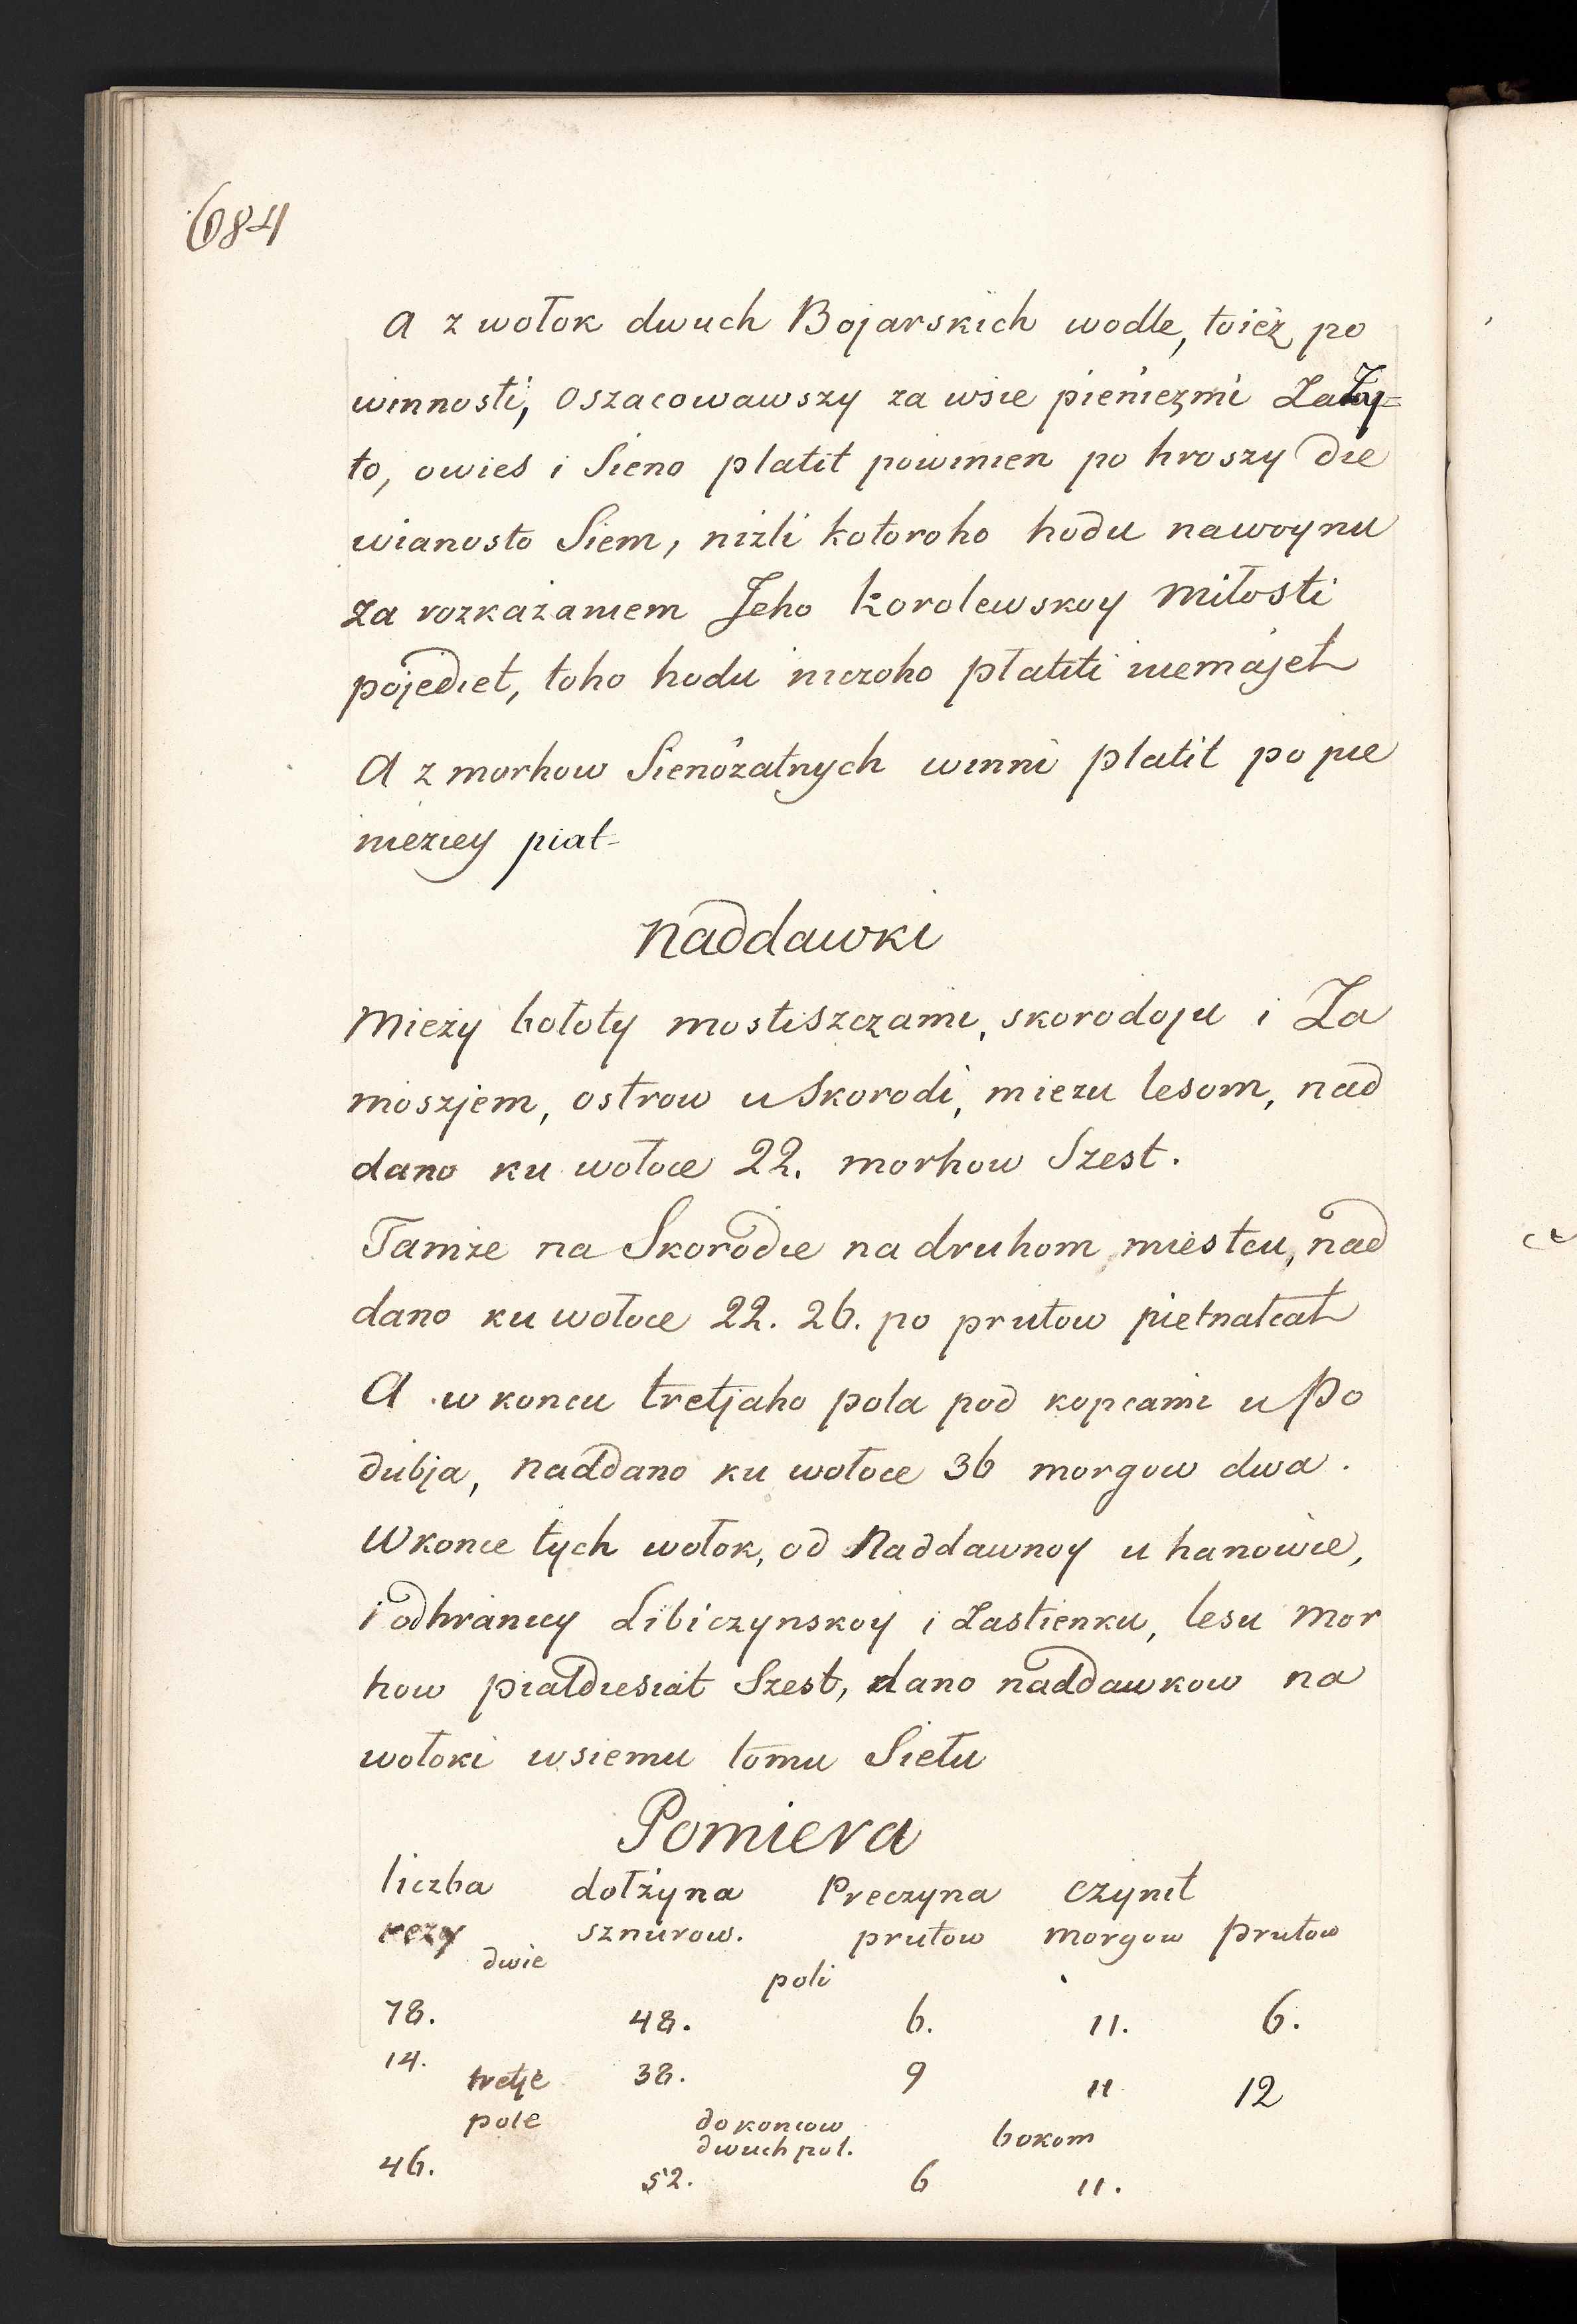 684
A z wołok dwuch Bojarskich wodle, toież po
winnosti, oszacowawszy za wsie pieniezmi Za Ży=
to, owies i Sieno platit powinien po hroszy die
wianosto Siem, nizli kotoroho hodu nawoynu
za rozkazaniem Jeho korolewskoy miłosti
pojediet, toho hodu niczoho płatiti niemajet
A z morhow Sienozatnych winni platit po pie
nieziey piat-
naddawki
Mieży bołoty mostiszczami, skorodoju i Za
moszjem, ostrow u Skorodi, miezu lesom, nad
dano ku wołoce 22. morhow Szest.
Tamże na Skorodie na druhom miestcu, nad
dano ku wołoce 22. 26. po prutow pietnatcat
A w koncu tretjaho pola pod kopcami u Po
dubja, naddano ku wołoce 36 morgow dwa.
W konce tych wołok, od Naddawnoy u hanowie,
i od hranicy Libiczynskoy i Zastienku, lesu mor
how piatdiesiat Szest, dano naddawkow na
wołoki wsiemu tomu Siełu
Pomiera
liczba dołżyna Preczyna czynit
rezy sznurow. prutow morgow prutow
dwie poli
78. 48. 6. 11. 6.
14. 38. 9 11 12
tretje
pole do koncow bokom
dwuch pol.
46. 52. 6 11.